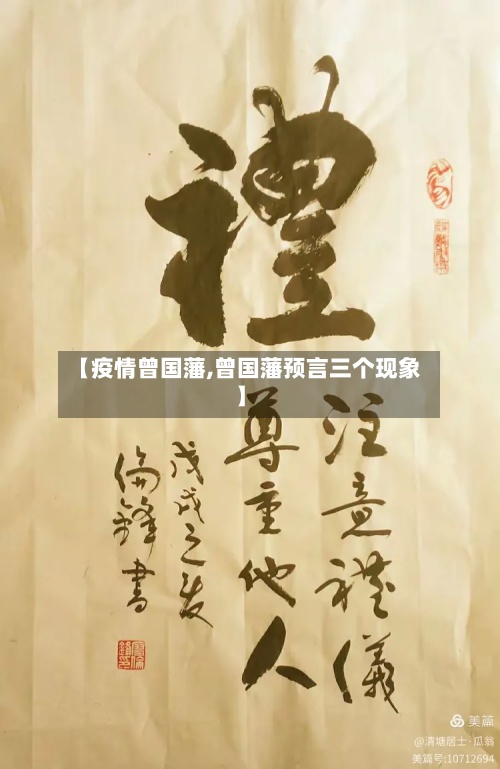 禮
【疫情曾国藩,曾国藩预言三个现象
】
注意禮儀
尊重他人
戊戌之夏
倫鋒書
美篇
@清塘居士·瓜翁
美篇号:10712694